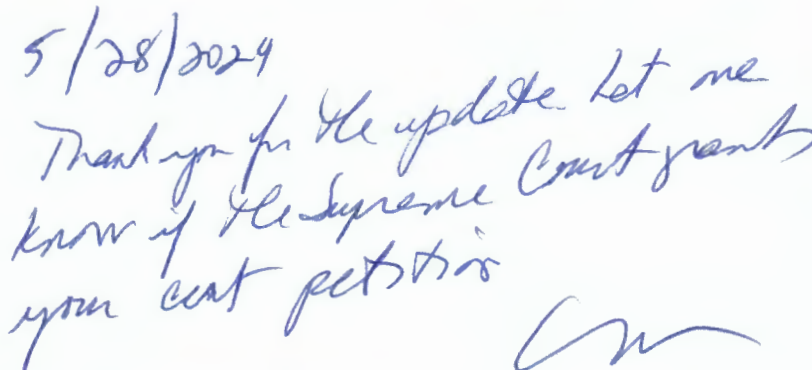 5/28/2024
Thank you for the update Let me
know if the Supreme Court grants
your cert petition